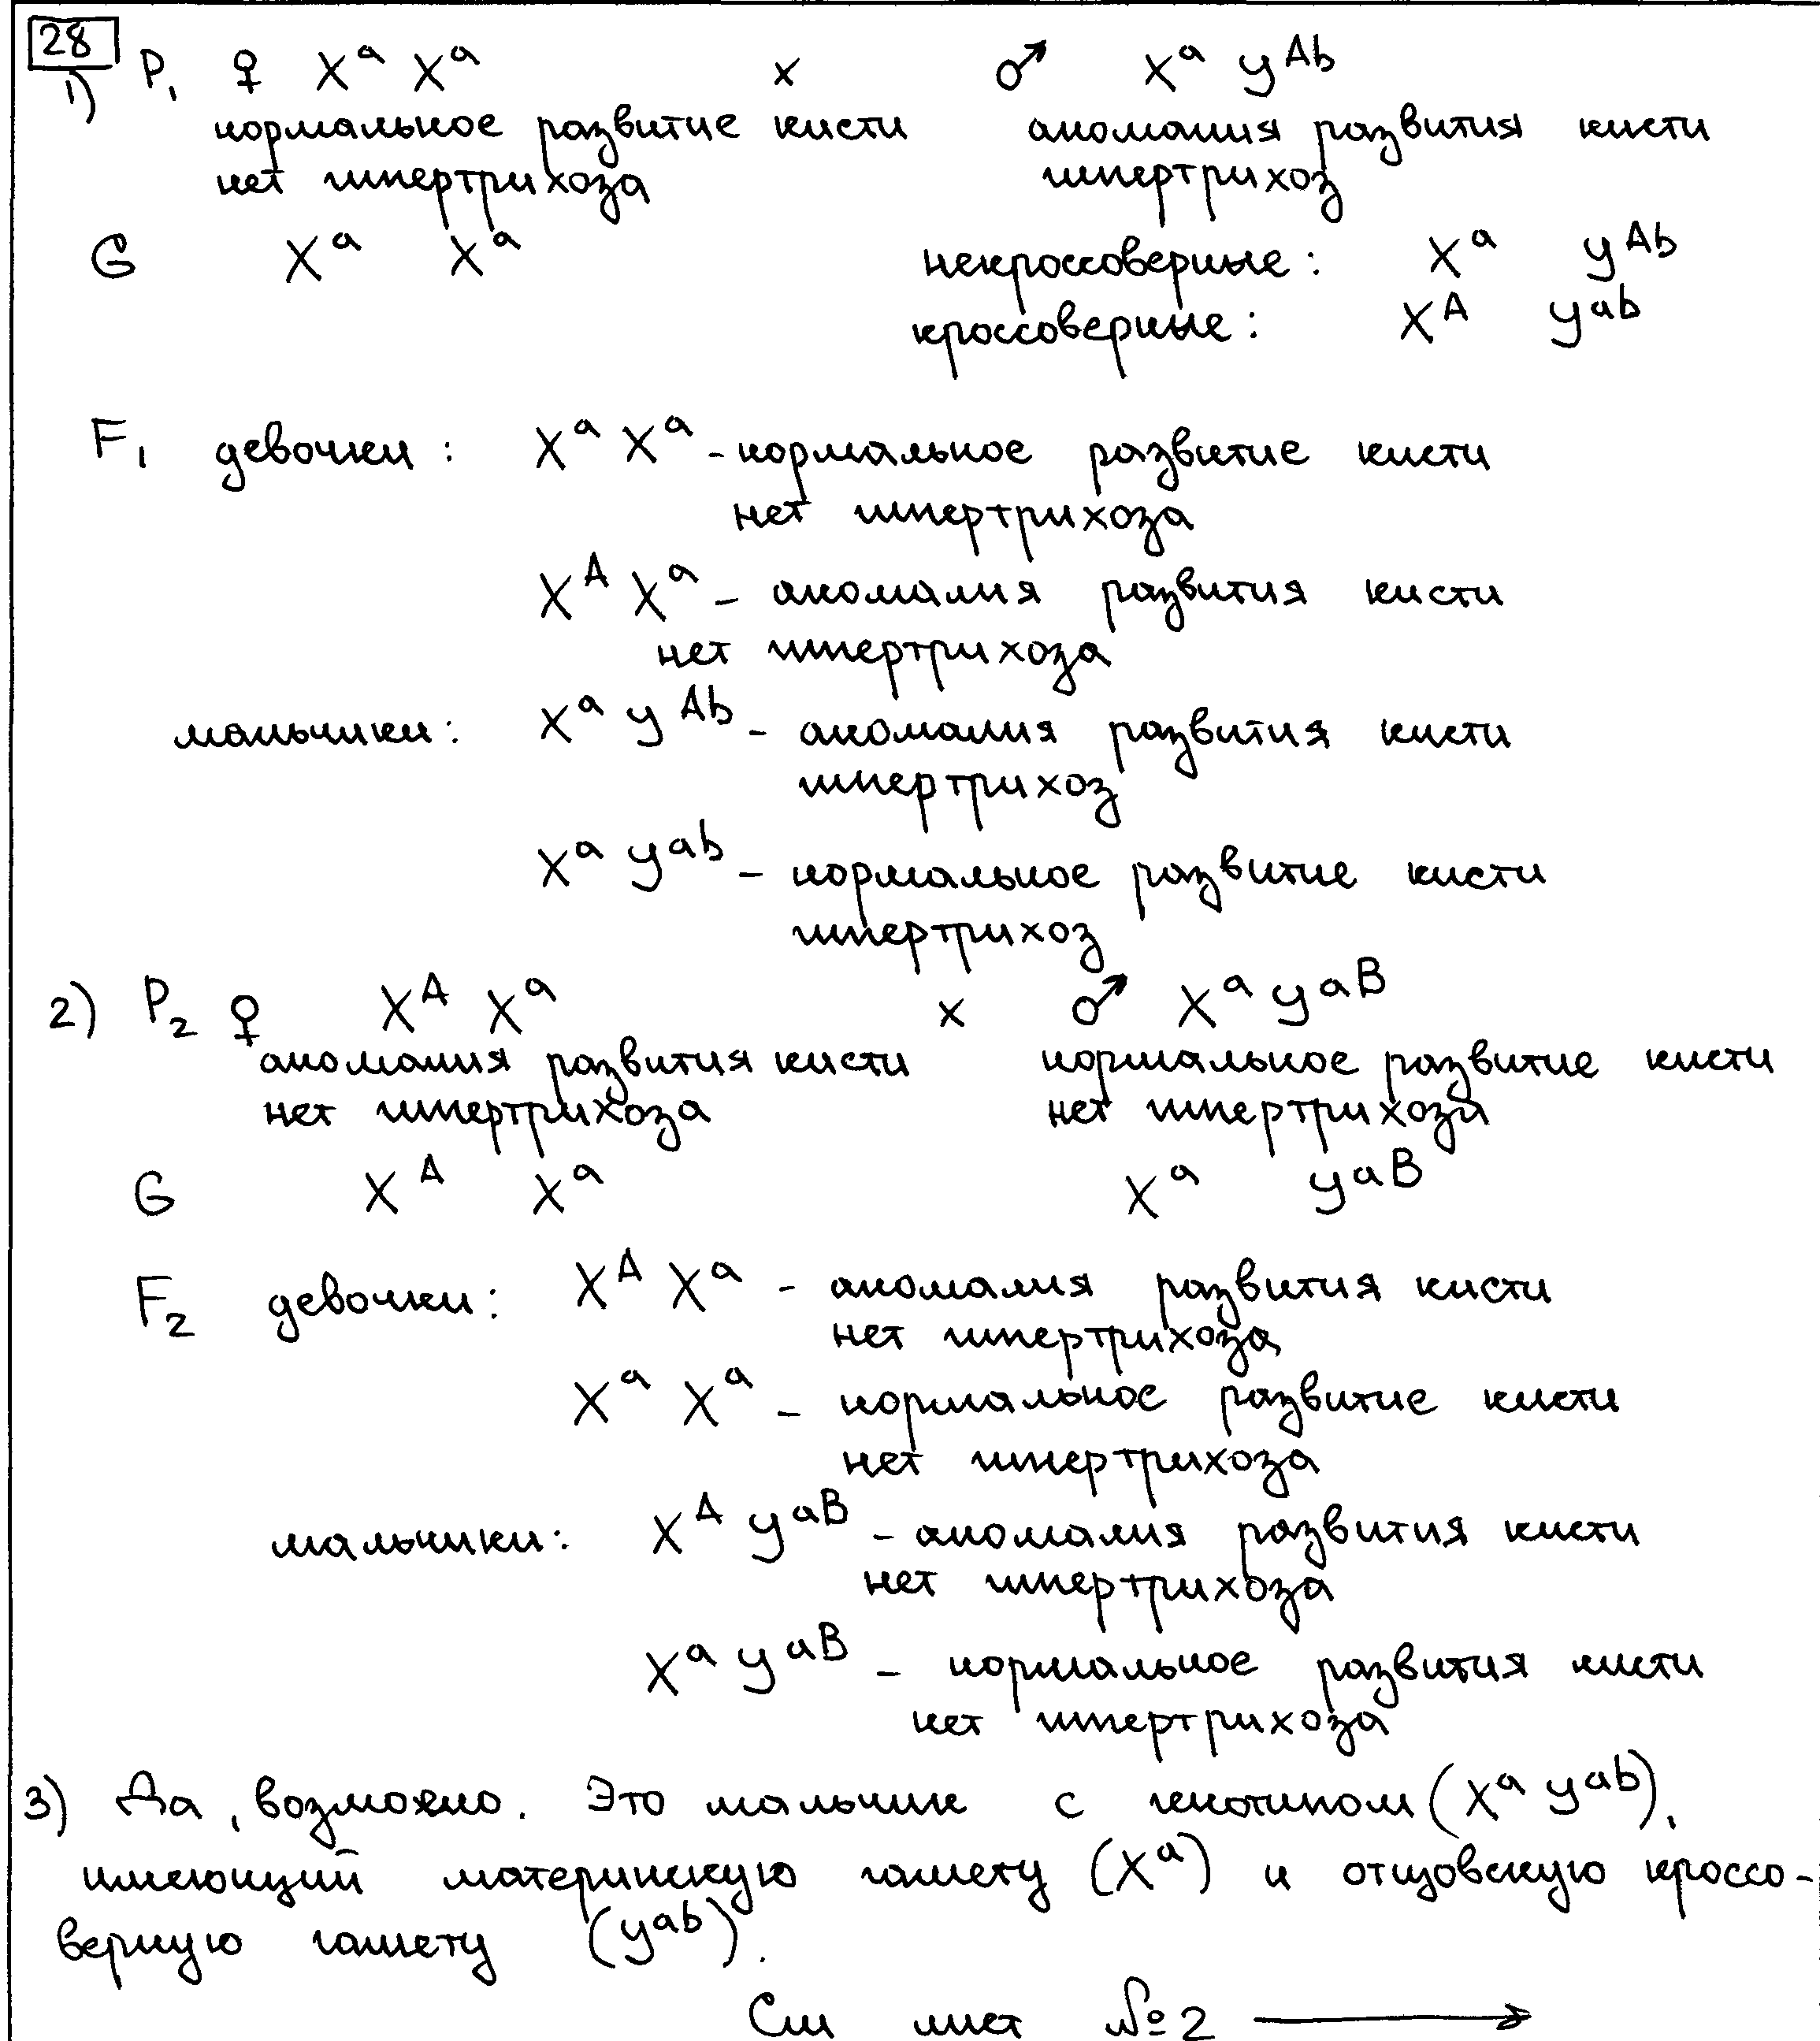 28
1) P₁ ♀ Xᵃ Xᵃ × ♂ Xᵃ Yᴬᵇ
нормальное развитие кисти аномалия развития кисти
нет гипертрихоза гипертрихоз
G Xᵃ Xᵃ некроссоверные: Xᵃ Yᴬᵇ
кроссоверные: Xᴬ Yᵃᵇ
F₁ девочки: Xᵃ Xᵃ - нормальное развитие кисти
нет гипертрихоза
Xᴬ Xᵃ - аномалия развития кисти
нет гипертрихоза
мальчики: Xᵃ Yᴬᵇ - аномалия развития кисти
гипертрихоз
Xᵃ Yᵃᵇ - нормальное развитие кисти
гипертрихоз
2) P₂ ♀ Xᴬ Xᵃ × ♂ Xᵃ Yᵃᴮ
аномалия развития кисти нормальное развитие кисти
нет гипертрихоза нет гипертрихоза
G Xᴬ Xᵃ Xᵃ Yᵃᴮ
F₂ девочки: Xᴬ Xᵃ - аномалия развития кисти
нет гипертрихоза
Xᵃ Xᵃ - нормальное развитие кисти
нет гипертрихоза
мальчики: Xᴬ Yᵃᴮ - аномалия развития кисти
нет гипертрихоза
Xᵃ Yᵃᴮ - нормальное развития кисти
нет гипертрихоза
3) Да, возможно. Это мальчик с генотипом (Xᵃ Yᵃᵇ),
имеющий материнскую гамету (Xᵃ) и отцовскую кроссо-
верную гамету (Yᵃᵇ).
См лист №2 →